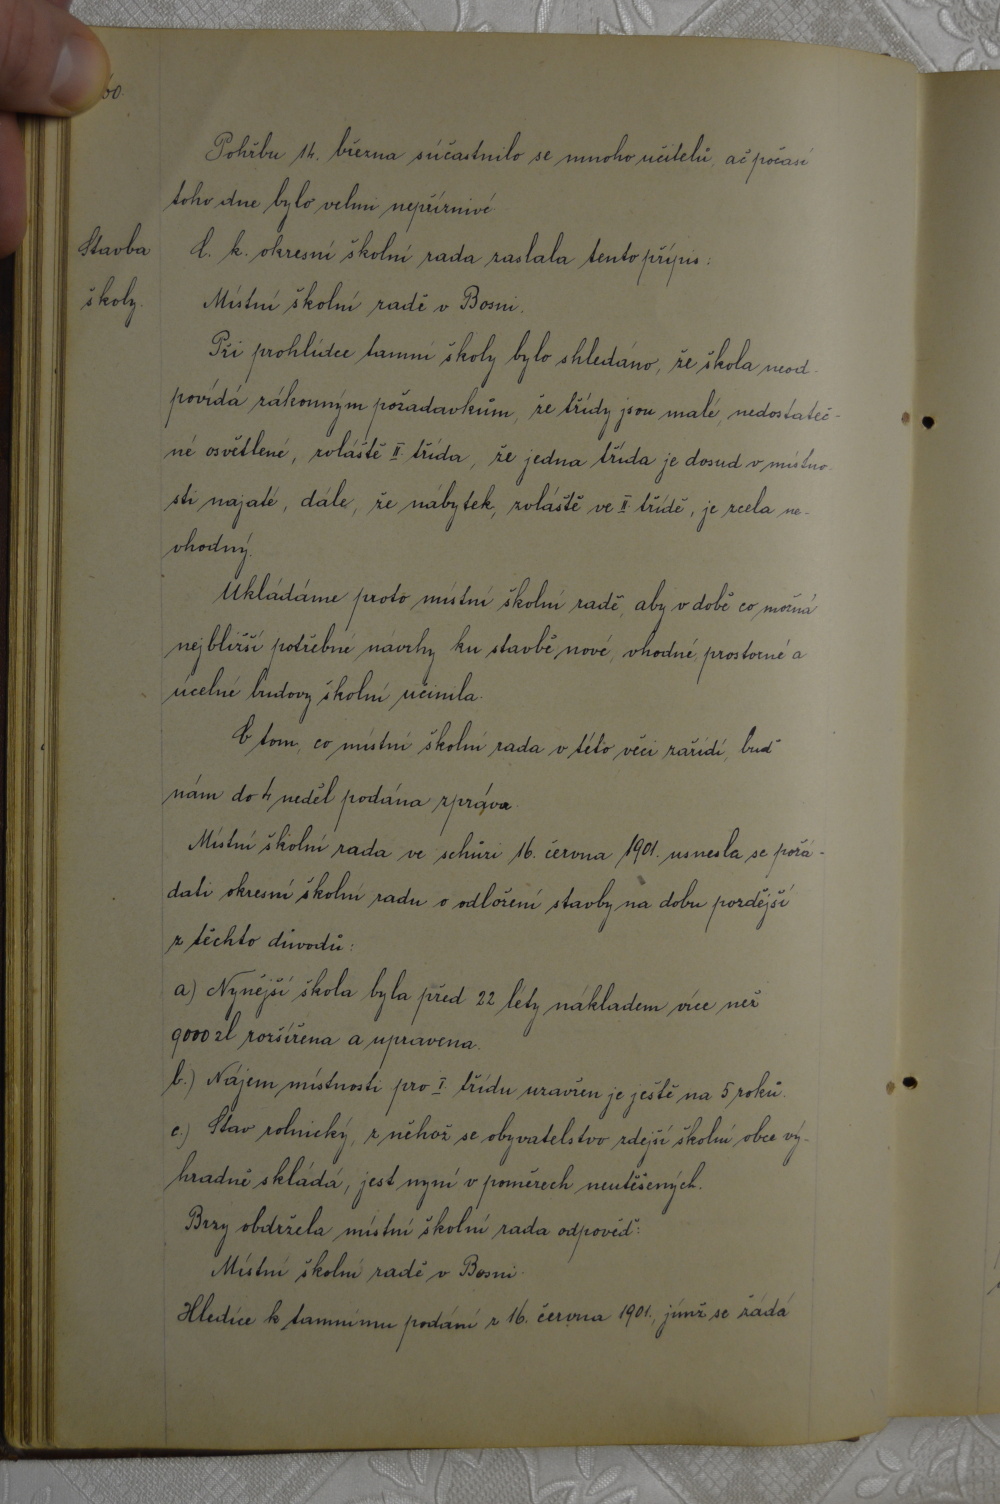 60.
Pohřbu 14. března súčastnilo se mnoho učitelů, ač počasí
toho dne bylo velmi nepříznivé
Stavba
školy.
C. k. okresní školní rada zaslala tento přípis:
Místní školní radě v Bosni.
Při prohlídce tamní školy bylo shledáno, že škola neod-
povídá zákonným požadavkům, že třídy jsou malé, nedostateč-
né osvětlené, zvláště II. třída, že jedna třída je dosud v místno-
sti najaté, dále, že nábytek, zvláště ve II. třídě, je zcela ne-
vhodný.
Ukládáme proto místní školní radě, aby v době co možná
nejbližší potřebné návrhy ku stavbě nové, vhodné, prostorné a
účelné budovy školní učinila.
O tom, co místní školní rada v této věci zařídí, buď
nám do 4 neděl podána zpráva.
Místní školní rada ve schůzi 16. června 1901. usnesla se požá-
dati okresní školní radu o odložení stavby na dobu pozdější
z těchto důvodů:
a) Nynější škola byla před 22 léty nákladem více než
9000 zl rozšířena a upravena.
b.) Nájem místnosti pro I. třídu uzavřen je ještě na 5 roků.
c.) Stav rolnický, z něhož se obyvatelstvo zdejší školní obce vý-
hradně skládá, jest nyní v poměrech neutěšených.
Brzy obdržela místní školní rada odpověď:
Místní školní radě v Bosni.
Hledíce k tamnímu podání z 16. června 1901., jímž se žádá